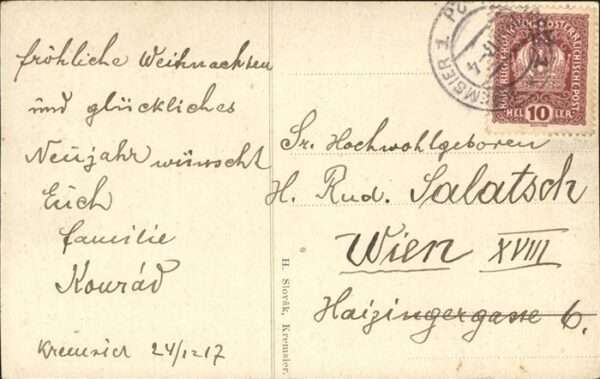 fröhliche Weihnachten
und glückliches
Neujahr wünscht
Euch
familie
Konrád
Kremsier 24/12 17
H. Slovák, Kremsier.
KREMSIER 1
KAIS. KÖNIGL. ÖSTERREICHISCHE POST
HEL 10 LER
Sr. Hochwohlgeboren
H. Rud. Salatsch
Wien XVIII
Haizingergasse 6.